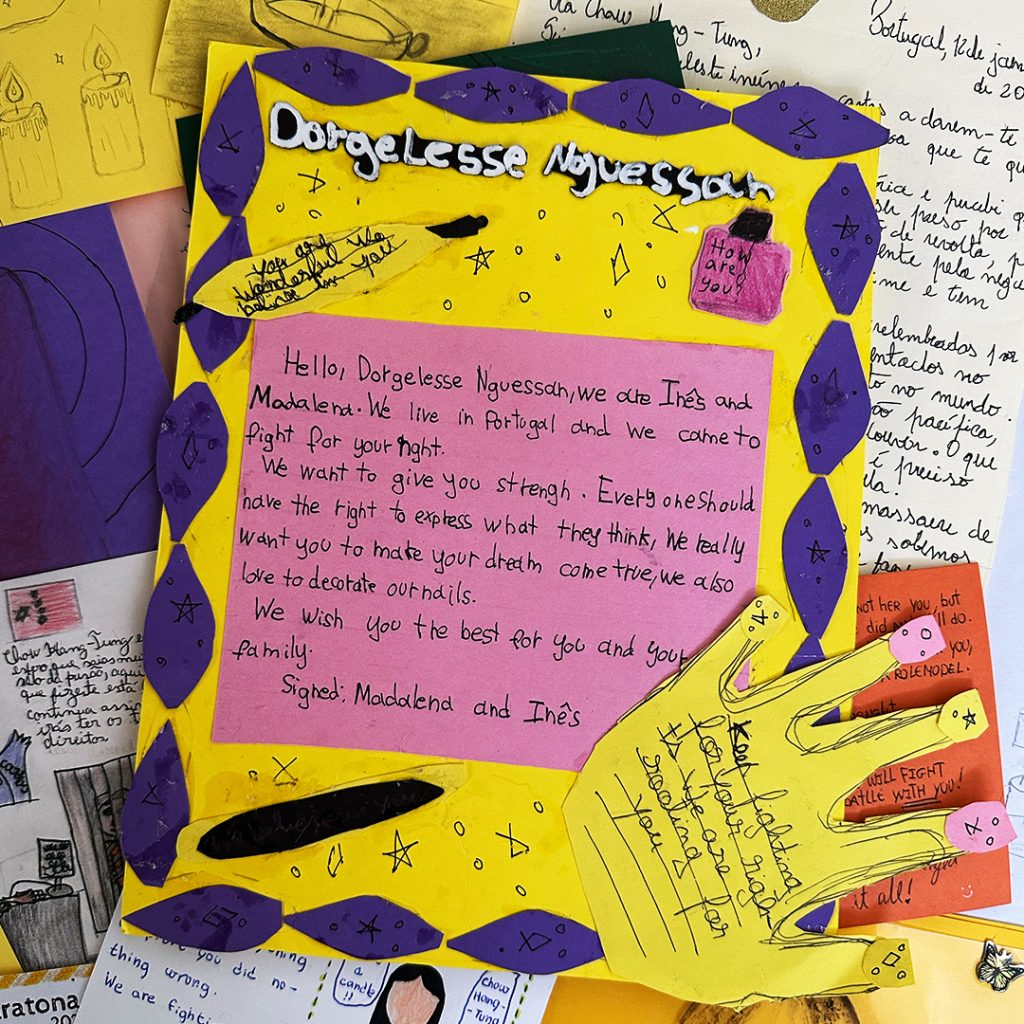 Dorgelesse Nguessan
You are
wonderful We
belive in you
How
are
you?
Hello, Dorgelesse Nguessan, we are Inês and
Madalena. We live in Portugal and we came to
fight for your right.
We want to give you strengh. Everyone should
have the right to express what they think, We really
want you to make your dream come true, we also
love to decorate our nails.
We wish you the best for you and your
family.
Signed: Madalena and Inês
Keet fighting
for your right
is We are
rooting for
you
Chow Hang-Tung,
Portugal, 12 de jan
de 20
cartas a darem-te
oa que te qu
ria e percebi q
ser preso por
de revolta, p
ente pela negue
me e tem
relembrados por
entados no
to no mundo.
ão pacífica,
louvar. O que
é preciso
ela.
massacre de
s sabemos
Chow Hang-Tung e
espo que sejas mui
que fizeste está
continua assi
irás ter os t
direitos
not her you, but
did all do.
you,
A ROLEMODEL.
WILL FIGHT
BATLLE WITH YOU!
it all!
you did no-
thing wrong.
We are fighti
a
candle
!!
Chow
Hang-
Tung
ratona
20